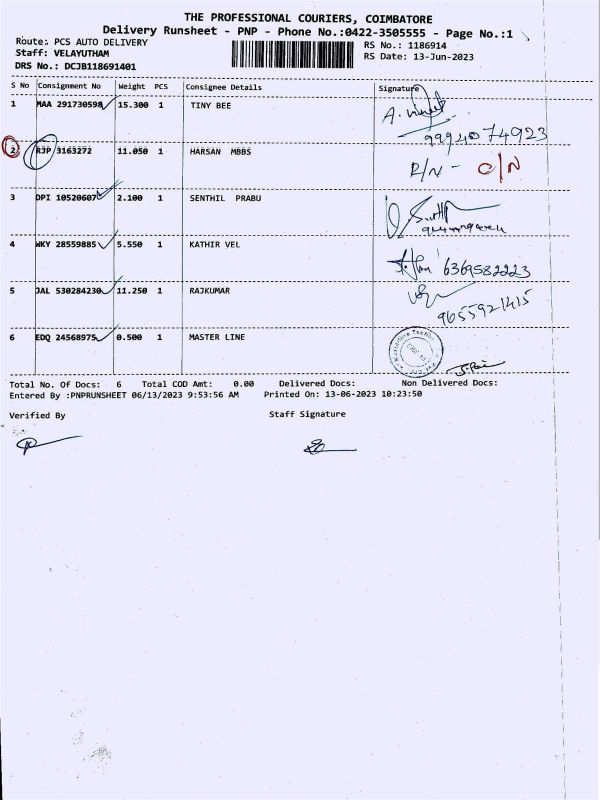 THE PROFESSIONAL COURIERS, COIMBATORE
Delivery Runsheet - PNP - Phone No.:0422-3505555 - Page No.:1
Route: PCS AUTO DELIVERY
RS No.: 1186914
Staff: VELAYUTHAM
RS Date: 13-Jun-2023
DRS No.: DCJB118691401
S No Consignment No Weight PCS Consignee Details Signature
1 MAA 291730598 15.300 1 TINY BEE
9994074923
2 RJP 3163272 11.050 1 HARSAN MBBS R/N - O/N
3 DPI 10520607 2.100 1 SENTHIL PRABU
4 WKY 28559885 5.550 1 KATHIR VEL 6369582223
5 JAL 530284230 11.250 1 RAJKUMAR 9655921415
6 EDQ 24568975 0.500 1 MASTER LINE
Total No. Of Docs: 6 Total COD Amt: 0.00 Delivered Docs: Non Delivered Docs:
Entered By :PNPRUNSHEET 06/13/2023 9:53:56 AM Printed On: 13-06-2023 10:23:50
Verified By Staff Signature